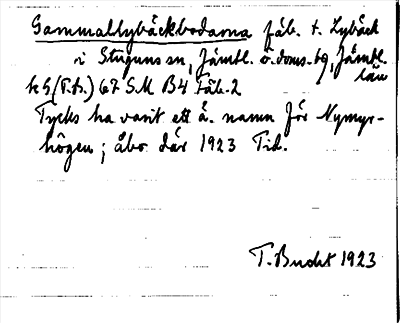 Gammallybäckbodarna fäb. t. Lybäck
i Stuguns sn, Jämtl. ö. doms. tg, Jämtl. län
k G.(T.A.) 67 S.M B4 Fäb. 2
Tycks ha varit ett ä. namn för Nymyr-
högen; åbo. där 1923 Tid.
T. Bucht 1923